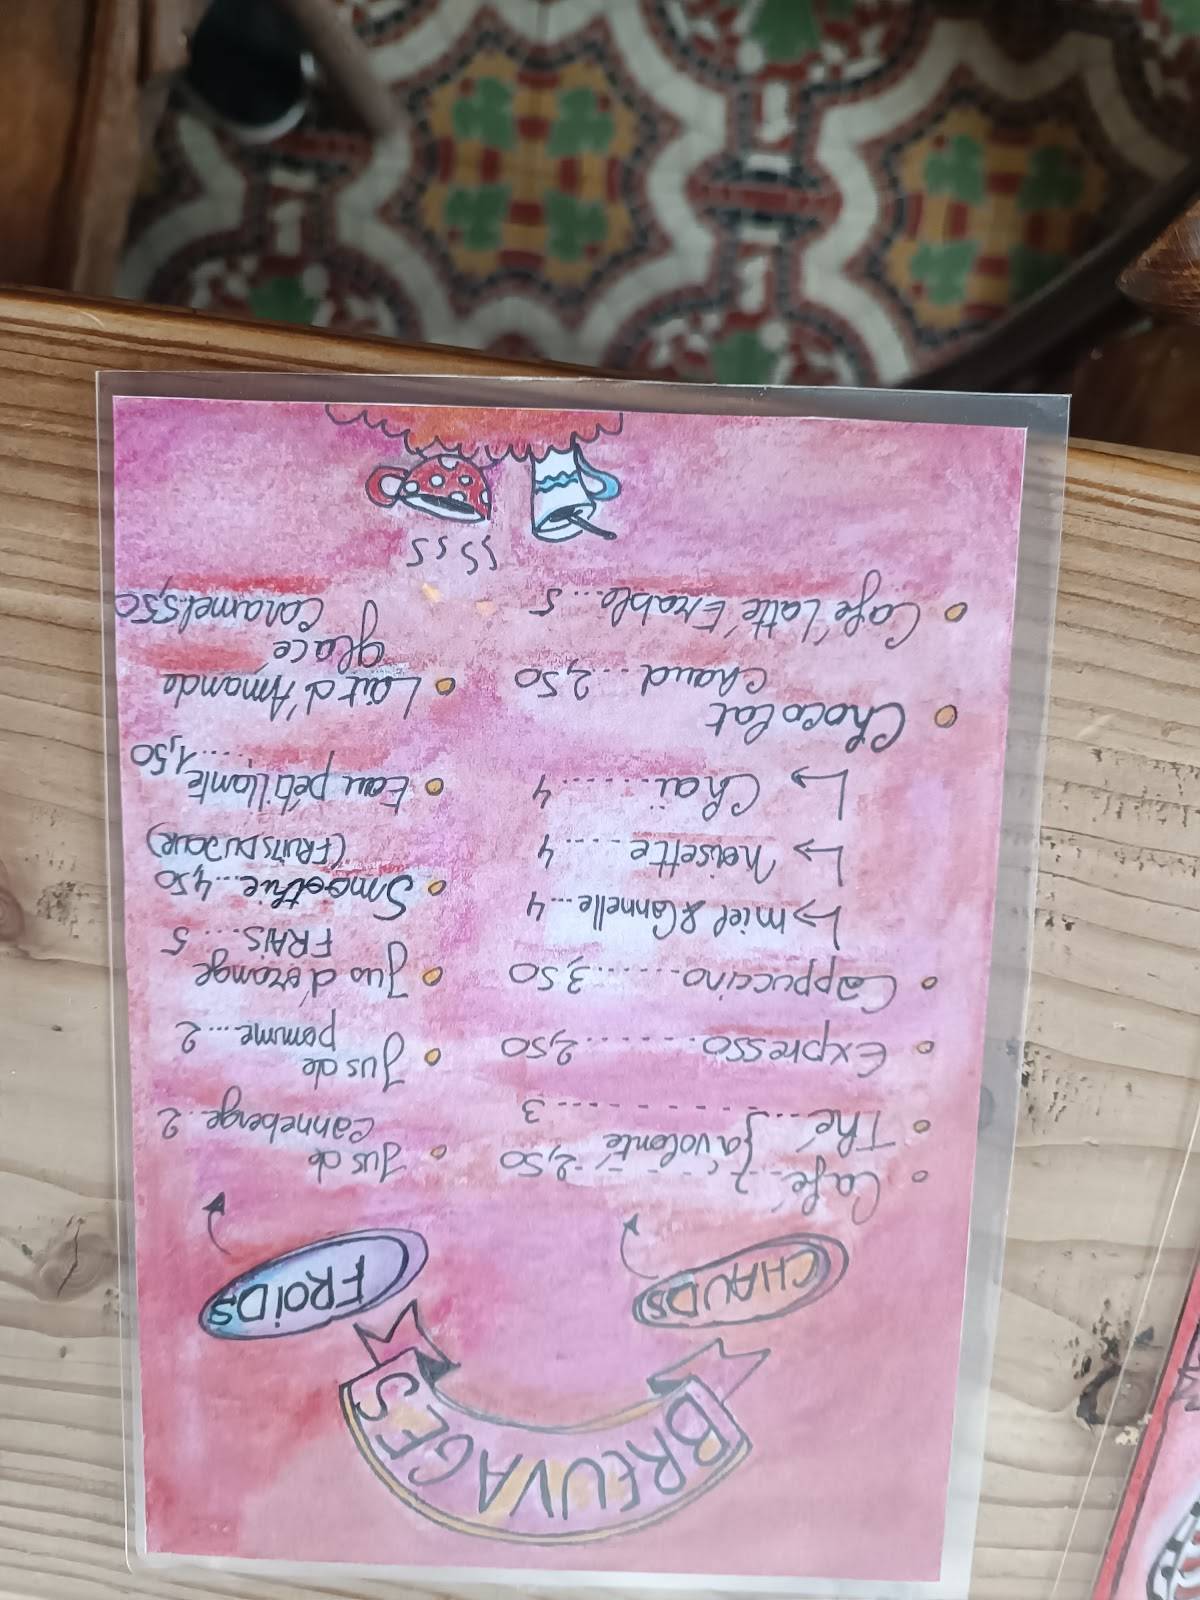 BREUVAGES
CHAUDS
Café } à volonté 2,50
Thé ............ 3
Expresso ........ 2,50
Cappuccino ...... 3,50
↳ miel & Cannelle ... 4
↳ Noisette ..... 4
↳ Chaï ........ 4
Chocolat
chaud ... 2,50
Café Latté Érable ... 5
FROIDS
Jus de
canneberge .. 2
Jus de
pomme .... 2
Jus d'orange
FRAIS .... 5
Smoothie ... 4,50
(FRUITS DU JOUR)
Eau pétillante
...... 1,50
Lait d'Amande
glacé
Caramel 5,50